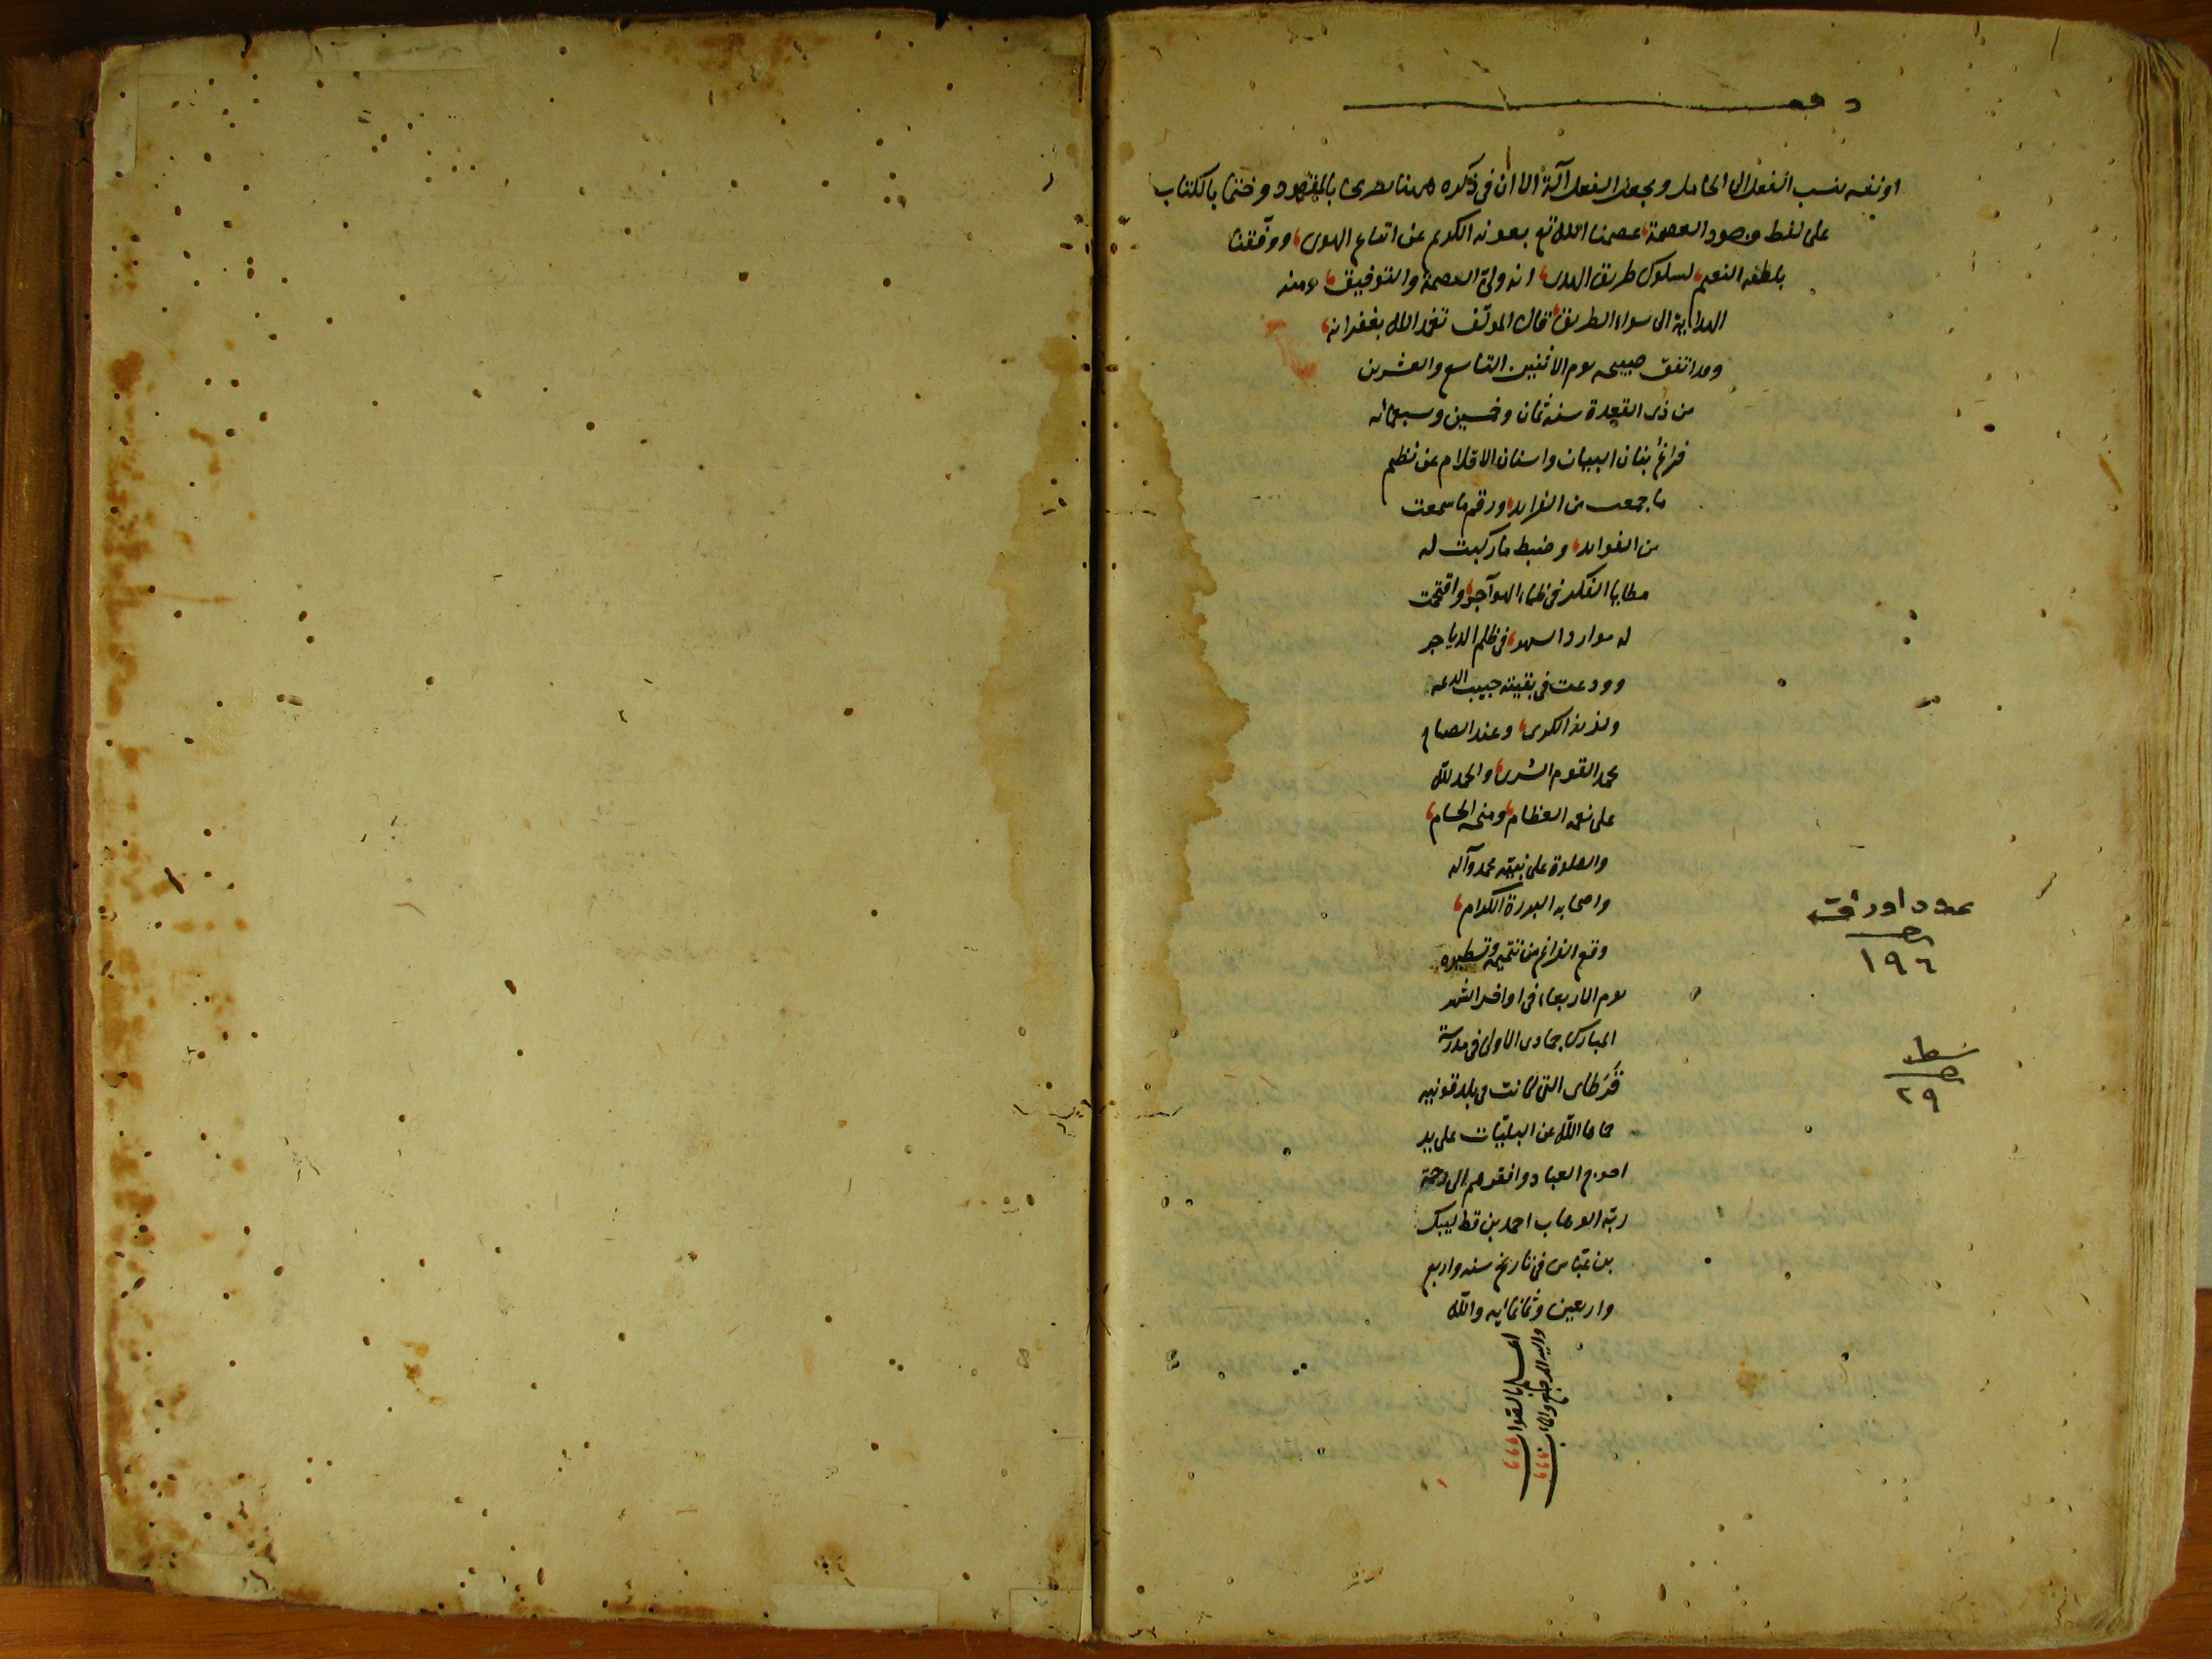 او نفسه ينسب الفعل الى الحامل ويجعل الفعل آلة الا ان فى ذكره ههنا بالمقصود وختما بالكتاب
على لفظ مقصود العصمة عصمنا الله تع بعونه الكريم عن اتباع الهوى ووفقنا
بلطفه النعيم لسلوك طريق الهدى انه ولى العصمة والتوفيق ومنه
الهداية الى سواء الطريق قال المؤلف تغمده الله بغفرانه
وقد اتفق صبيحه يوم الاثنين التاسع والعشرين
من ذى القعدة سنه ثمان وخمسين وسبعمائه
فراغ بنان البيان واسنان الاقلام عن نظم
ما جمعت من الفرايد ورقم ما سمعت
من الفوايد وضبط ما ركبت له
مطايا الفكر فى ظماء الهواجر واقتحمت
له موارد السهو فى ظلم الدياجر
وودعت فى بقيته حبيب الدعه
ولذيذ الكرى وعند الصباح
يحمد القوم السرى والحمد لله
على نعمه العظام ومنحه الجسام
والصلوة على نبيه محمد وآله
واصحابه البررة الكرام
وقع الفراغ من تتميمه وتسطيره
يوم الاربعاء فى اواخر الشهر
المبارك جمادى الاولى فى مدرسة
قرطاى التى كانت فى بلد قونيه
حماها الله عن البليات على يد
احوج العباد وافقرهم الى رحمة
ربه الوهاب احمد بن قطليبك
بن عباس فى تاريخ سنه واربع
واربعين وثمانمايه والله
اعلم بالصواب
واليه المرجع والمآب
عدد اوراقه
١٩٦
سطر
٢٩